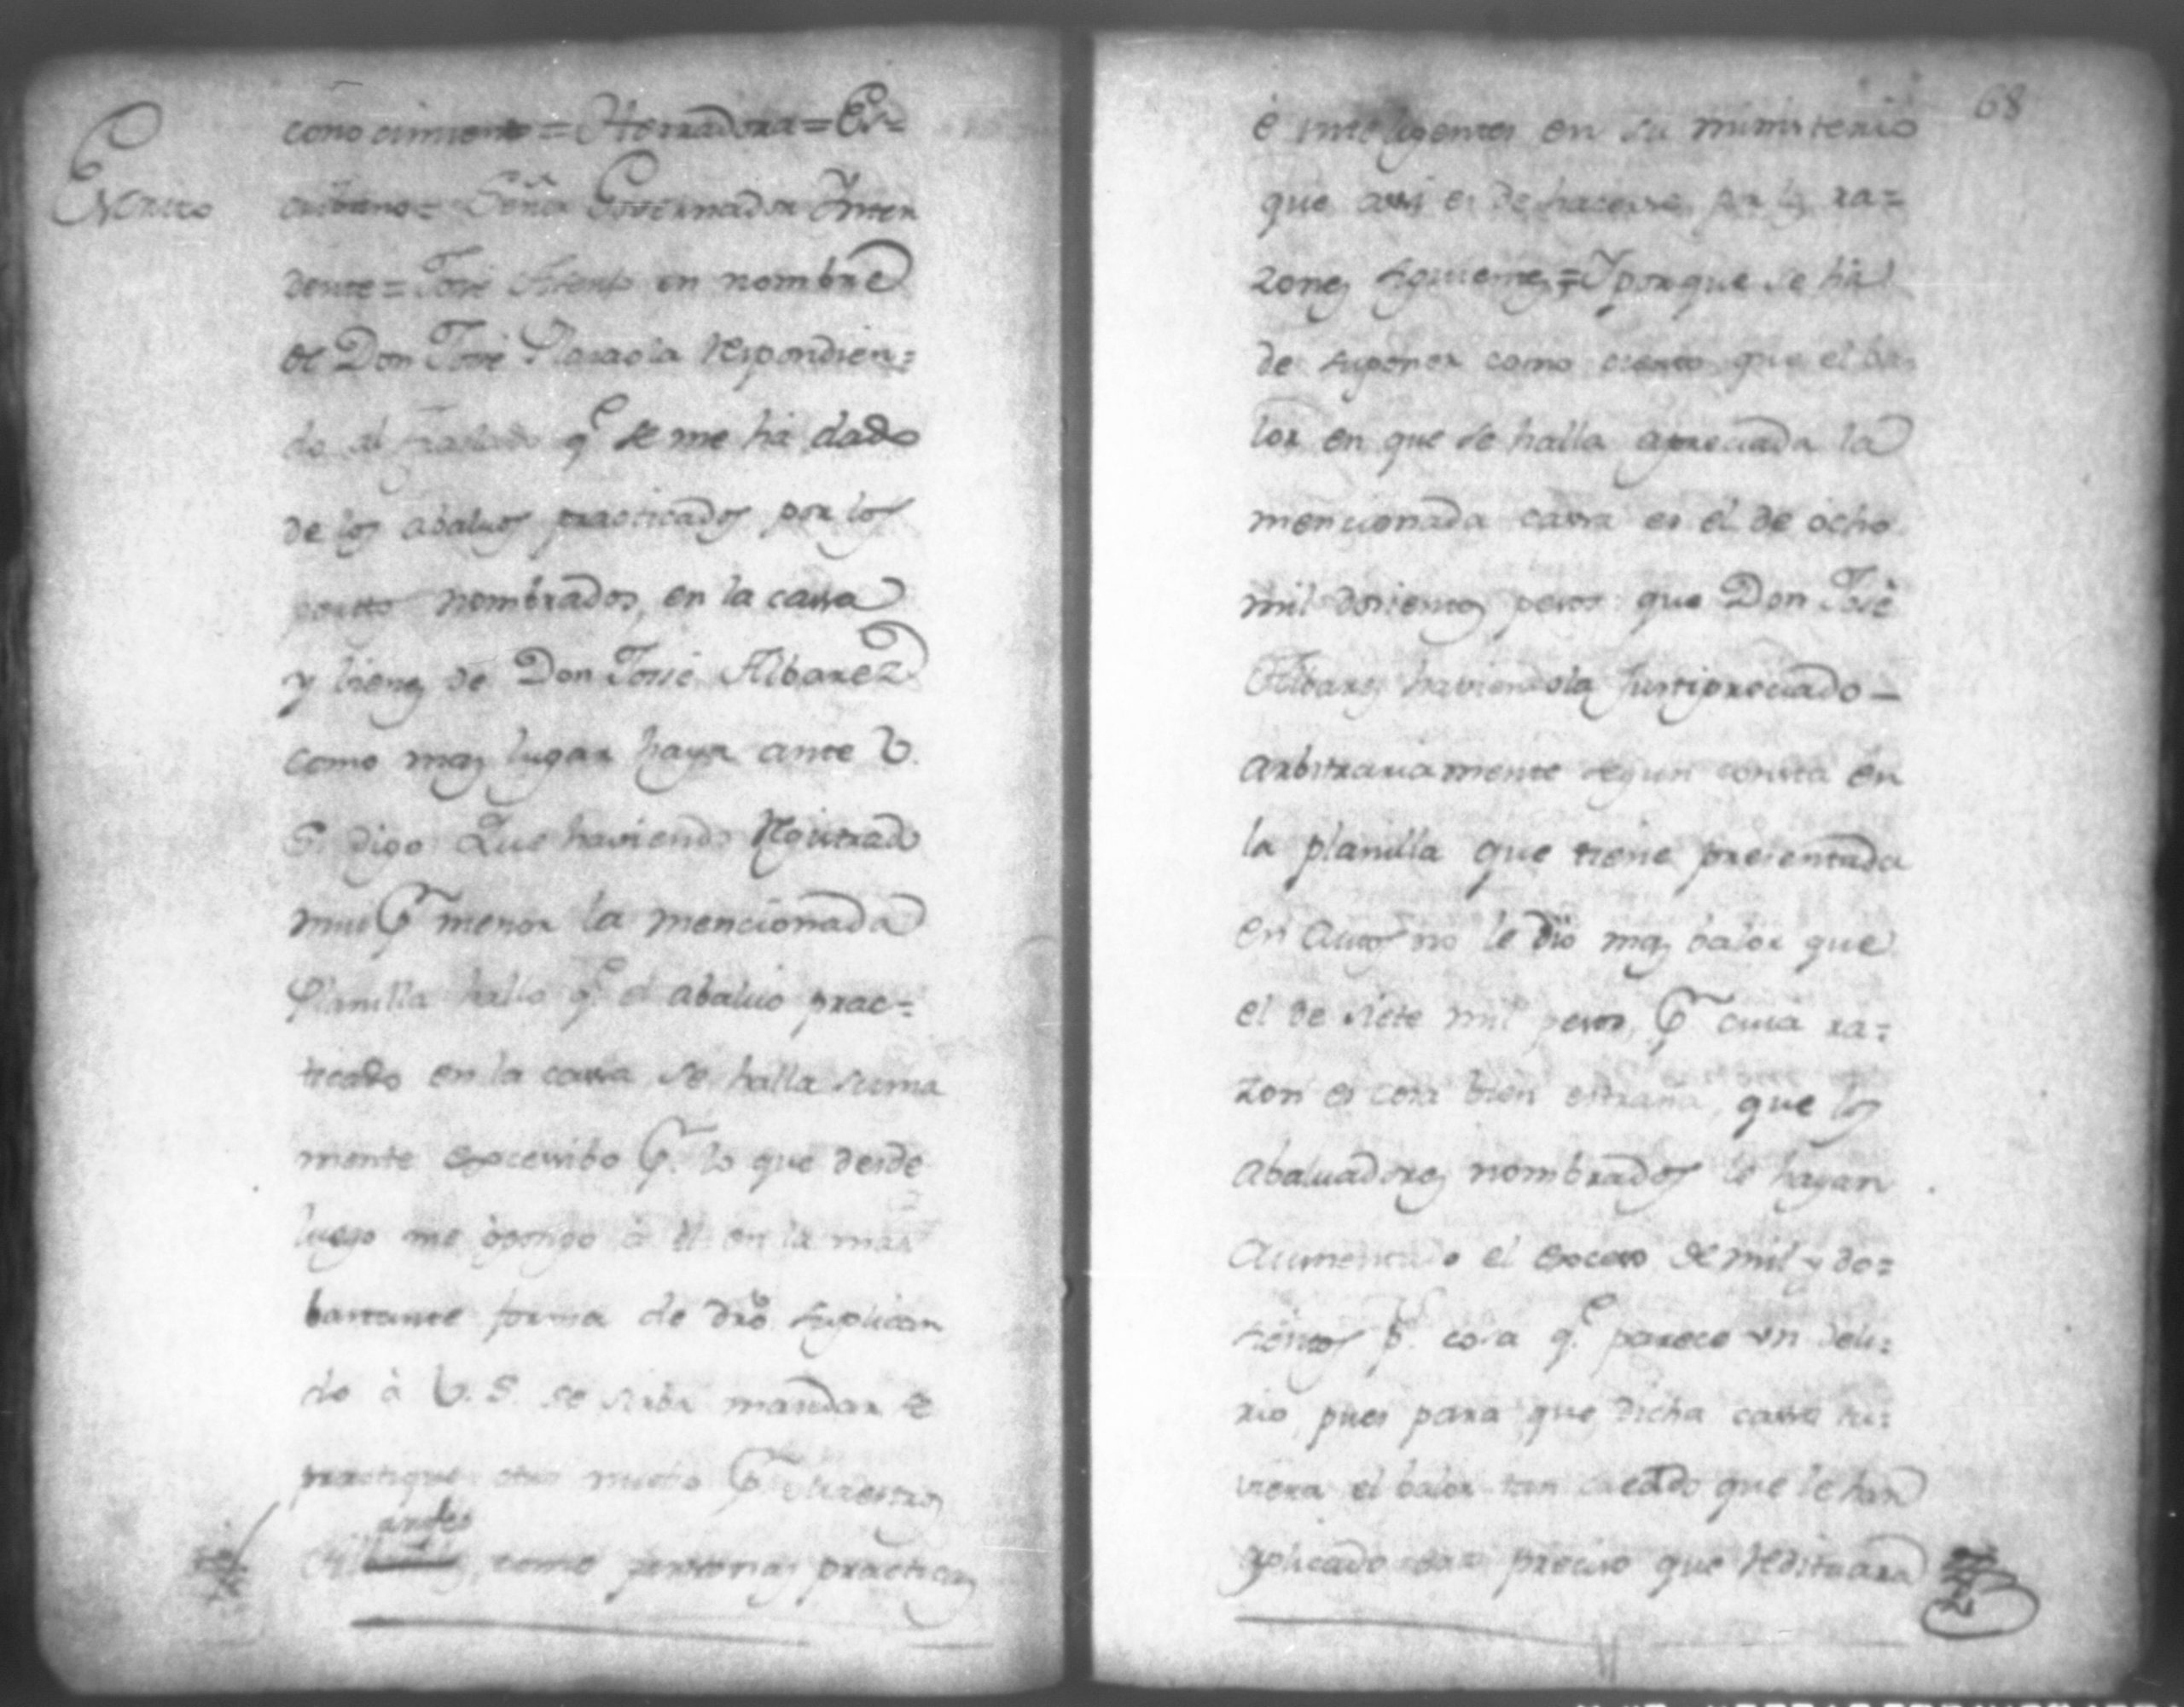 Escrito
conocimiento = Herradora = Es=
cribano = Señor Governador Inten
dente = José en nombre
de Don José respondien=
do al traslado q.e se me ha dado
de los abaluos practicados por los
nombrados, en la cassa
y bienes de Don José Albarez
como mas lugar haya ante V.
S. digo Que haviendo registrado
mui P.r menor la mencionada
Planilla hallo q.e el abaluo prac=
ticado en la cassa se halla suma
mente excessibo P.r lo que desde
luego me opongo à él en la mas
bastante forma de dró. suplican
do à V. S. se sirba mandar se
practique otro nuebo P.r Maestros
andes
como personas practicas
68
é inteligentes en su ministerio
que assi es de hacerse por las ra=
zones siguientes = Y porque se há
de suponer como cierto que el ba
lor en que se halla apreciada la
mencionada cassa es el de ocho
mil dosientos pesos que Don José
Albares haviendola justipreciado —
arbitrariamente segun consta en
la planilla que tiene presentada
en Autos no le dió mas balor que
el de siete mil pesos, P.r cuia ra=
zon es cosa bien estraña, que los
abaluadores nombrados le hayan
aumentado el exceso de mil y do=
sientos p.s cosa q.e parece un deli=
rio, pues para que dicha cassa tu=
viera el balor tan que le han
aplicado era preciso que redituara